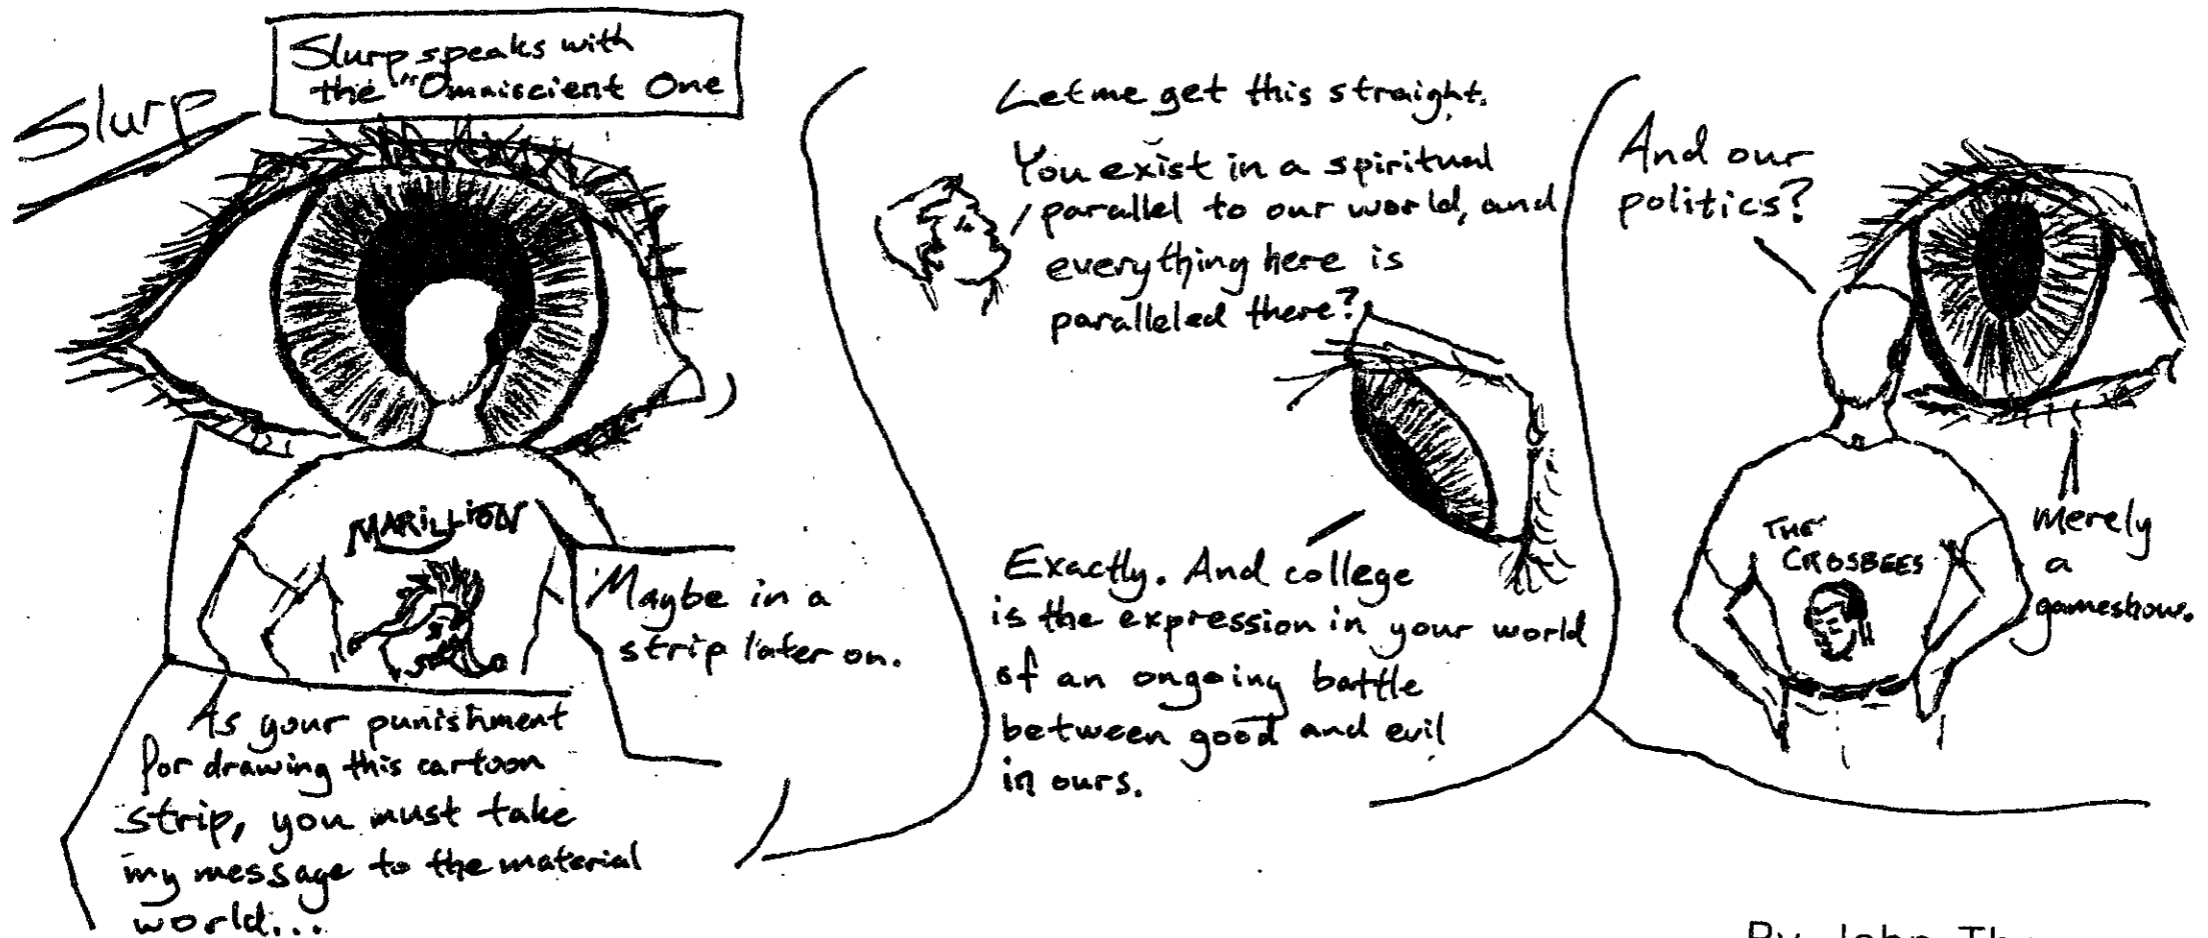 Slurp
Slurp speaks with
the "Omniscient One
MARILLION
As your punishment
for drawing this cartoon
strip, you must take
my message to the material
world...
Maybe in a
strip later on.
Let me get this straight.
You exist in a spiritual
parallel to our world, and
everything here is
paralleled there?
Exactly. And college
is the expression in your world
of an ongoing battle
between good and evil
in ours.
And our
politics?
THE
CROSBEES
Merely
a
gameshow.
By John